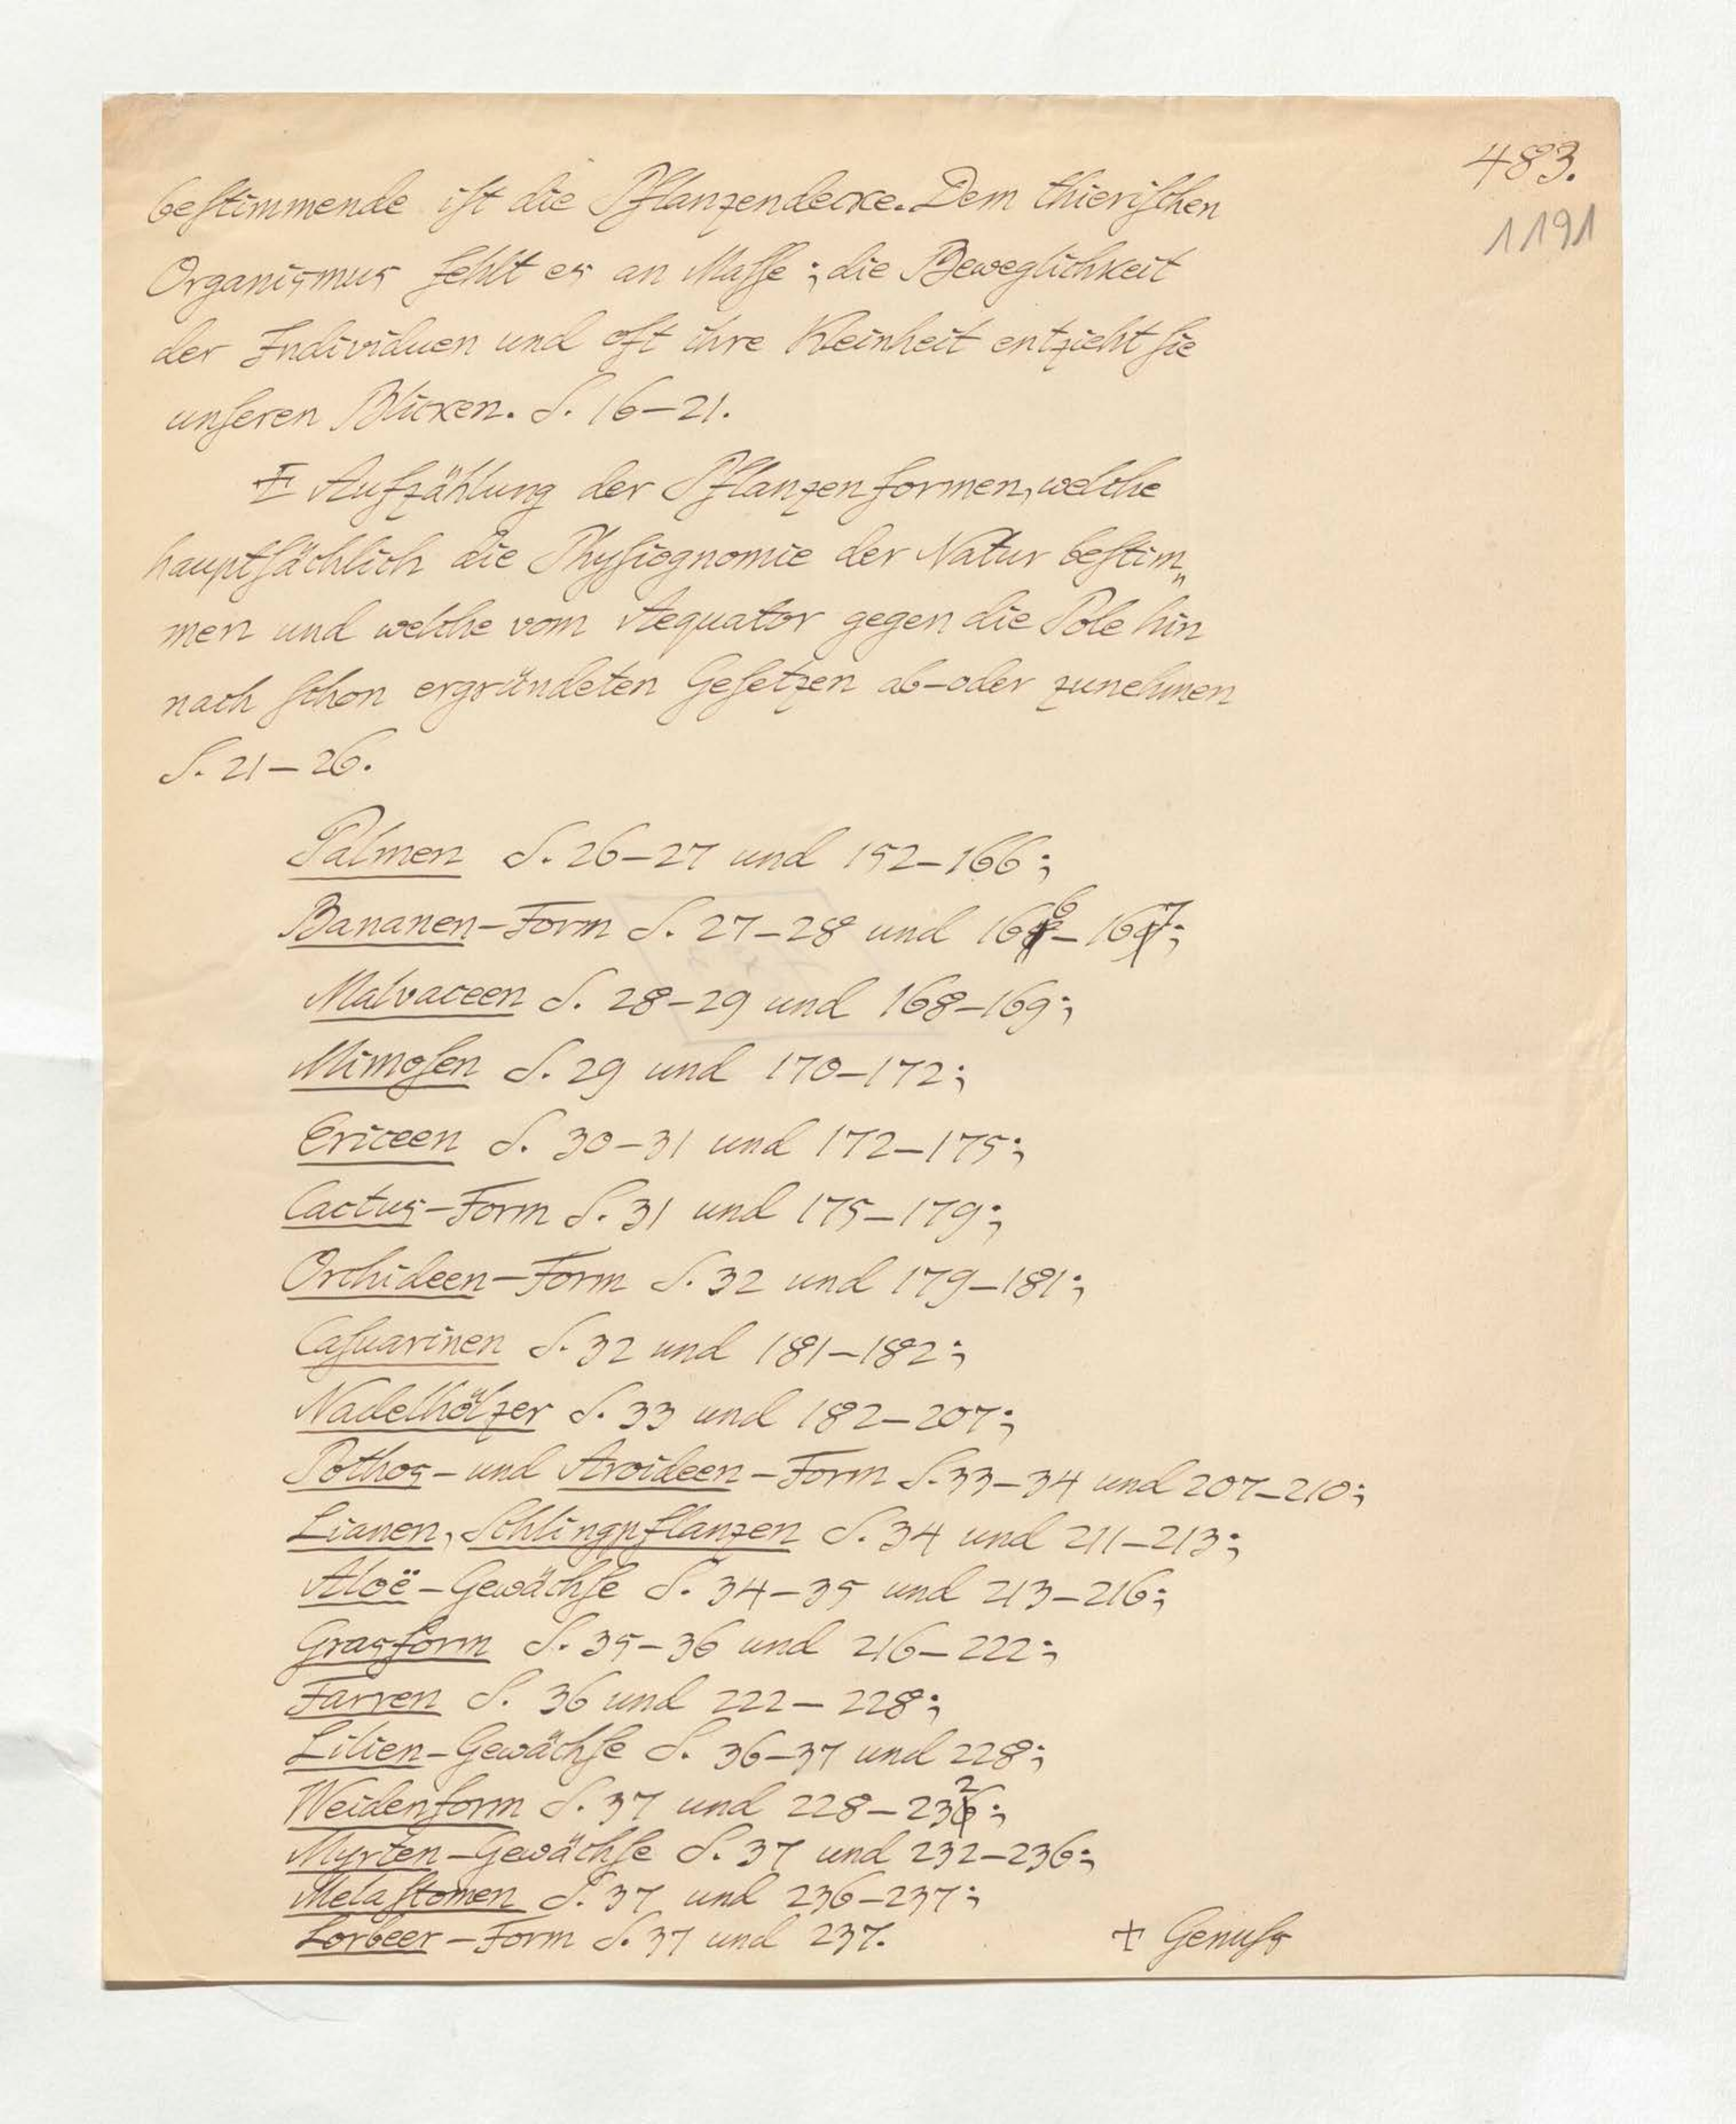 483.
1191
bestimmende ist die Pflanzendecke. Dem thierischen
Organismus fehlt es an Masse; die Beweglichkeit
der Individuen und oft ihre Kleinheit entzieht sie
unseren Blicken. S. 16–21.
Aufzählung der Pflanzenformen, welche
hauptsächlich die Physiognomie der Natur bestim„
men und welche vom Aequator gegen die Pole hin
nach schon ergründeten Gesetzen ab- oder zunehmen
S. 21–26.
Palmen S. 26–27 und 152–166;
Bananen-Form S. 27–28 und 166–167;
Malvaceen S. 28–29 und 168–169;
Mimosen S. 29 und 170–172;
Ericeen S. 30–31 und 172–175;
Cactus-Form S. 31 und 175–179;
Orchideen-Form S. 32 und 179–181;
Casuarinen S. 32 und 181–182;
Nadelhölzer S. 33 und 182–207;
Pothos- und Aroideen-Form S. 33–34 und 207–210;
Lianen, Schlingpflanzen S. 34 und 211–213;
Aloë-Gewächse S. 34–35 und 213–216;
Grasform S. 35–36 und 216–222;
Farren S. 36 und 222–228;
Lilien-Gewächse S. 36–37 und 228;
Weidenform S. 37 und 228–232;
Myrten-Gewächse S. 37 und 232–236;
Melastomen S. 37 und 236–237;
Lorbeer-Form S. 37 und 237.
+ Genuss